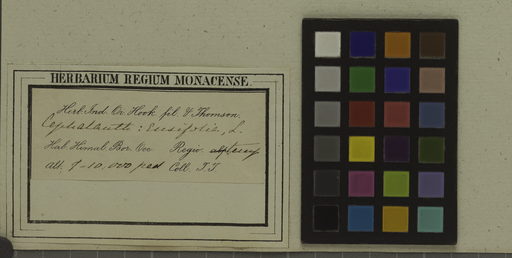 HERBARIUM REGIUM MONACENSE.
Herb. Ind. Or. Hook. fil. & Thomson.
Cephalanth: Ensifolia, L.
Hab. Himal. Bor. Occ Regio. temp
alt. 7-10,000 ped Coll. T.T.